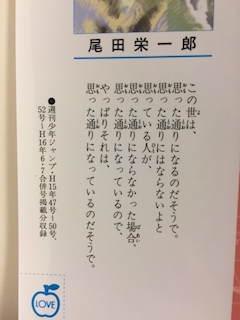 尾田栄一郎
この世は、
思った通りになるのだそうで。
思った通りにはならないよと
思っている人が、
思った通りにならなかった場合、
思った通りになっているので、
やっぱりそれは、
思った通りになっているのだそうで。
●週刊少年ジャンプ・H15年47号〜50号、
52号〜H16年6・7合併号掲載分収録
LOVE